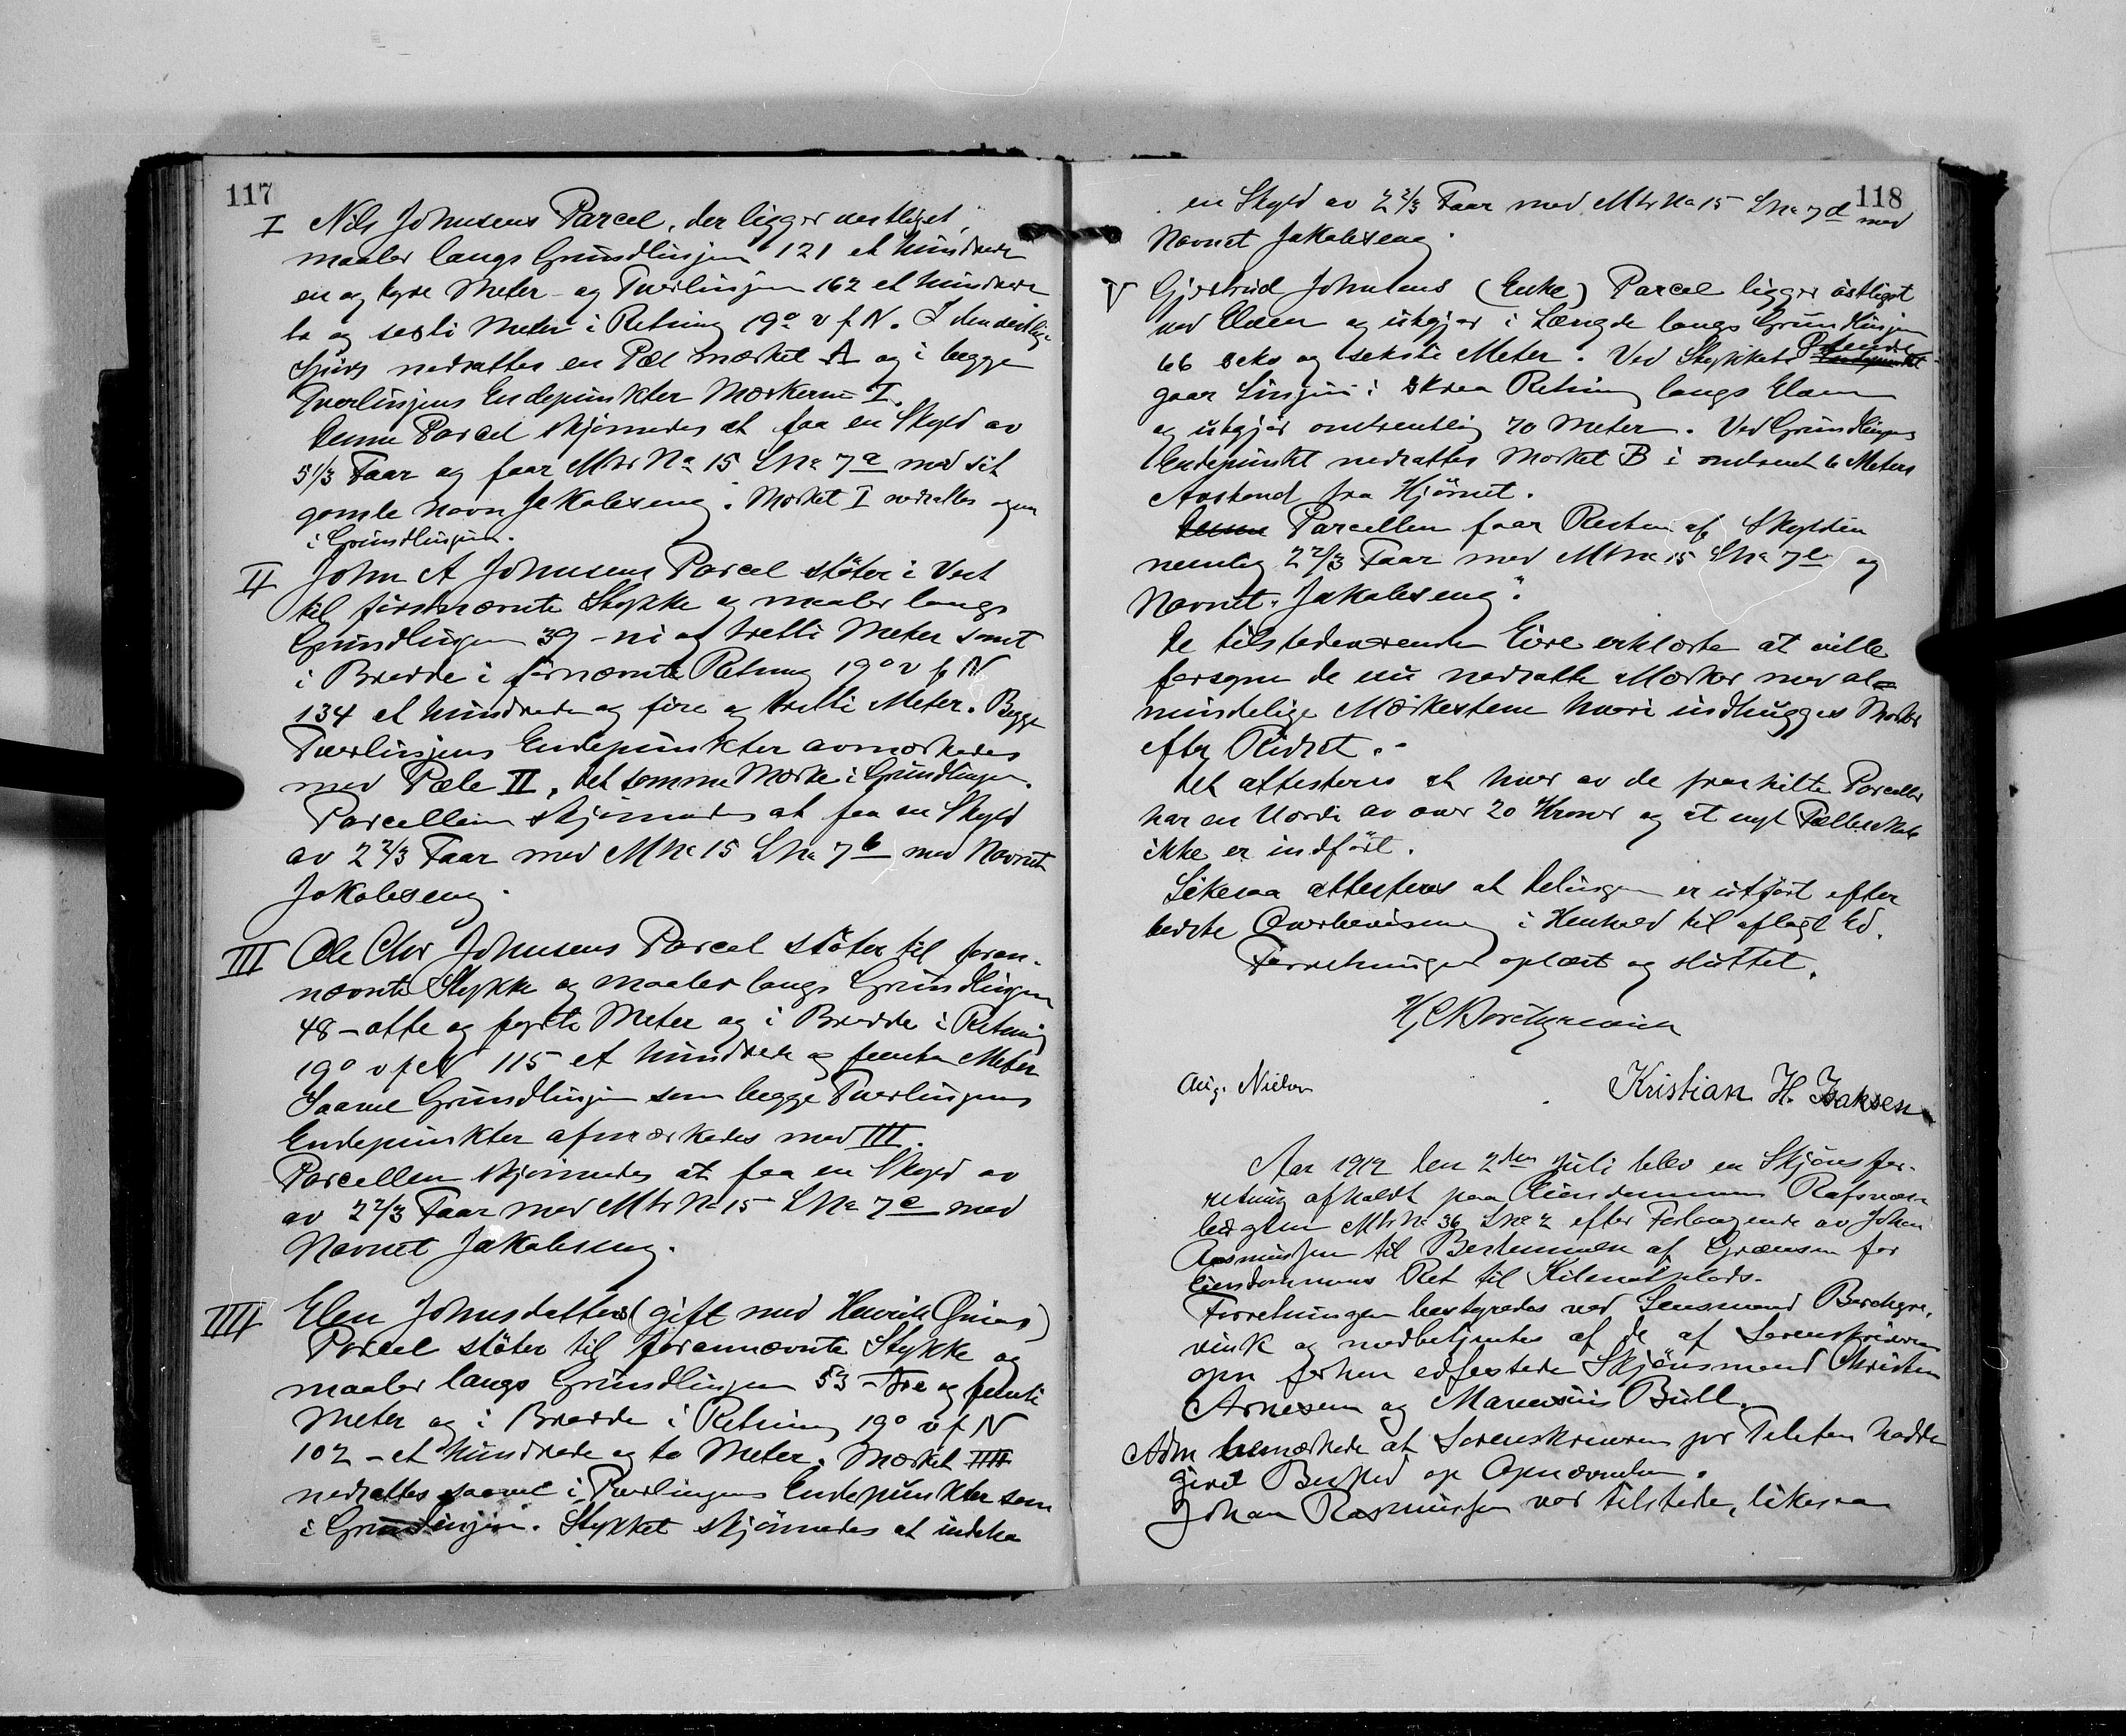 117
I Nils Johnsens Parcel, der ligger vestligst,
maaler langs Grundlinjen 121 et hundrede
en og tyve Meter og Tverlinjen 162 et hundrede
to og seksti Meter i Retning 19° v f N. I den vestlige
Spids nedsattes en Pæl mærket A og i begge
Tverlinjens Endepunkter Mærkerne I.
Denne Parcel skjønnedes at faa en Skyld av
5 1/3 Faar og faar Mtr No 15 LNo 7a med sit
gamle Navn Jakobseng. Mærket I nedsattes ogsaa
i Grundlinjen.
II John A Johnsens Parcel støter i Vest
til førstnævnte Stykke og maaler langs
Grundlinjen 39 - ni og tretti Meter samt
i Bredde i førnævnte Retning 19° v f N
134 et hundrede og fire og tretti Meter. Begge
Tverlinjens Endepunkter avmærkedes
med Pæle II, det samme Mærke i Grundlinjen.
Parcellen skjønnedes at faa en Skyld
av 2 2/3 Faar med MNo 15 LNo 7b med Navnet
Jakobseng.
III Ole Chr Johnsens Parcel støter til foran-
nævnte Stykke og maaler langs Grundlinjen
48 - otte og førti Meter og i Bredde i Retning
19° v f N 115 et hundrede og femten Meter
Saavel Grundlinjen som begge Tverlinjens
Endepunkter afmærkedes med III.
Parcellen skjønnedes at faa en Skyld av
av 2 2/3 Faar med Mtr No 15 LNo 7c med
Navnet Jakobseng.
IIII Elen Johnsdatters (gift med Henrik )
Parcel støter til forannævnte Stykke og
maaler langs Grundlinjen 53 - tre og femti
Meter og i Bredde i Retning 19° v f N
102 - et hundrede og to Meter. Mærket IIII
nedsattes saavel i Tverlinjens Endepunkter som
i Grundlinjen. Stykket skjønnedes at indeha
118
en Skyld av 2 2/3 Faar med Mtr No 15 LNo 7d med
Navnet Jakobseng.
V Gjertrud Johnsens (Enke) Parcel ligger østligst
ved Elven og utgjør i Længde langs Grundlinjen
66 seks og seksti Meter. Ved Stykkets Østende
gaar Linjen i skraa Retning langs Elven
og utgjør omtrentlig 70 Meter. Ved Grundlinjens
Endepunkt nedsattes Mærket B i omtrent 6 Meters
Avstand fra Hjørnet.
Denne Parcellen faar Resten af Skylden
nemlig 2 2/3 Faar med Mtr No 15 LNo 7e og
Navnet "Jakobseng".
De tilstedeværende Eiere erklærte at ville
forsyne de nu nedsatte Mærker med al-
mindelige Mærkestene hvori indhugges Mærker
efter Ridset.
Det attesteres at hver av de fraskilte Parceller
har en Værdi av over 20 Kroner og at nyt Fællesskab
ikke er indført.
Likesaa attesteres at Delingen er utført efter
bedste Overbevisning i Henhold til aflagt Ed.
Forretningen oplæst og sluttet.
H C Borchgrevink
Aug. Nielsen
Kristian H. Isaksen
Aar 1912 den 2den Juli blev en Skjønsfor-
retning afholdt paa Eiendommen Rafsnæs
Mtr No 36 LNo 2 efter Forlangende av Johan
Rasmussen til Bestemmelse af Grænsen for
Eiendommens Ret til Kilenotplads.
Forretningen bestyredes ved Lensmand Borchgre-
vink og medbetjentes af de af Sorenskriveren
opn forhen edfestede Skjønsmænd Christen
Arnesen og Marensius Bull.
Adm bemærkede at Sorenskriveren per Telefon hadde
givet Besked om Opnævnelsen.
Johan Rasmussen var tilstede, likesaa